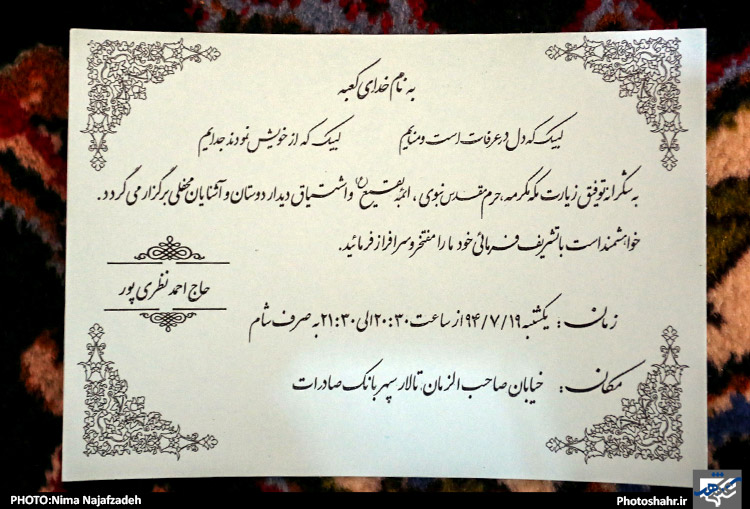 به نام خدای کعبه
لبیک که دل در عرفات است و منایم لبیک که از خویش نمودند جدایم
به شکرانه توفیق زیارت مکه مکرمه، حرم مقدس نبوی، ائمه بقیع (ع) و اشتیاق دیدار دوستان و آشنایان محفلی برگزار می گردد.
خواهشمند است با تشریف فرمائی خود ما را مفتخر و سرافراز فرمائید.
حاج احمد نظری پور
زمان: یکشنبه ۹۴/۷/۱۹ از ساعت ۲۰:۳۰ الی ۲۱:۳۰ به صرف شام
مکان: خیابان صاحب الزمان، تالار سپهر بانک صادرات
PHOTO:Nima Najafzadeh
Photoshahr.ir